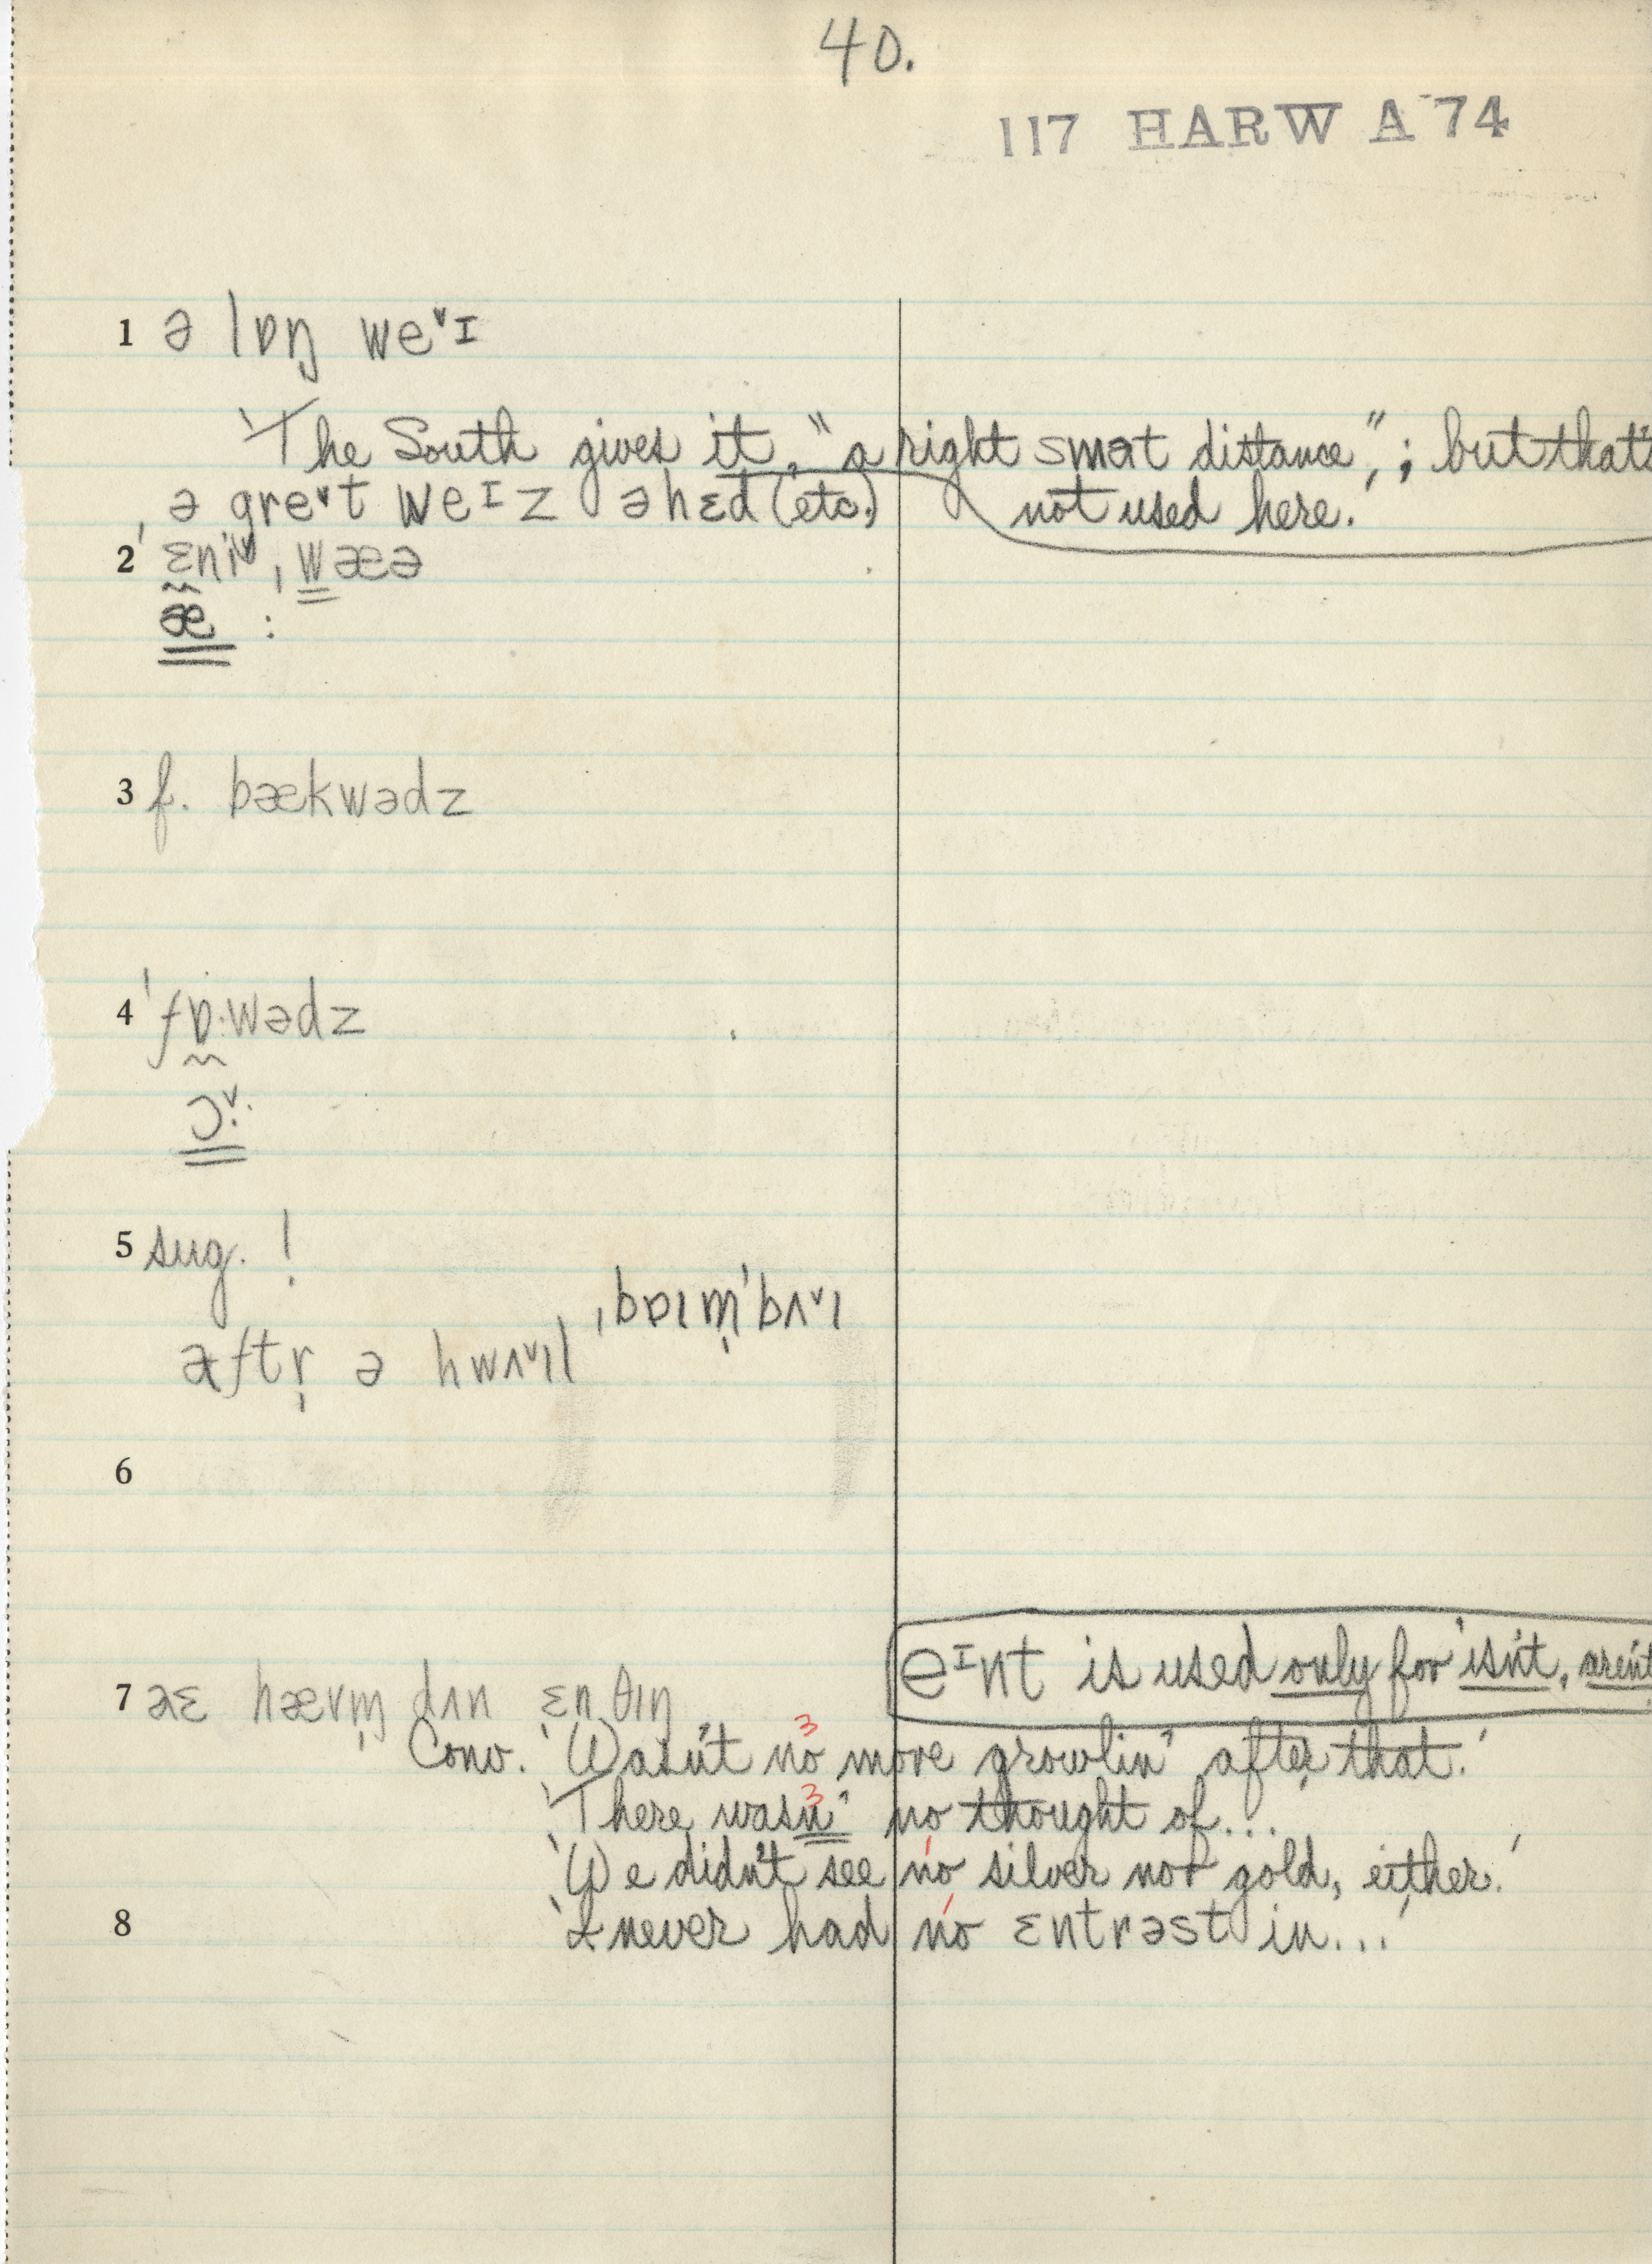 40.
117 HARW A 74
1 ə lɒŋ weˇɪ
'The South gives it, "a right smɑt distance,"; but that's
not used here.'
ə greˇt weɪz əhɛd (etc.)
2 ˈɛniˇ ˌwæə
æ :
3 f. bækwədz
4 ˈfɒ·wədz
ɔˇ·
5 sug. !
ˌbɒɪm̩ˈbʌˇɪ
aftr̩ ə hwʌˇɪl
6
eɪnt is used only for 'isn't, aren't
7 hævm̩ dʌn ɛnθɪŋ
Conv. 'Wasn't no more growlin' after that.'
3
'There wasn' no thought of...'
3
'We didn't see no silver nor gold, either.'
8 'I never had no ɛntrəst in...'